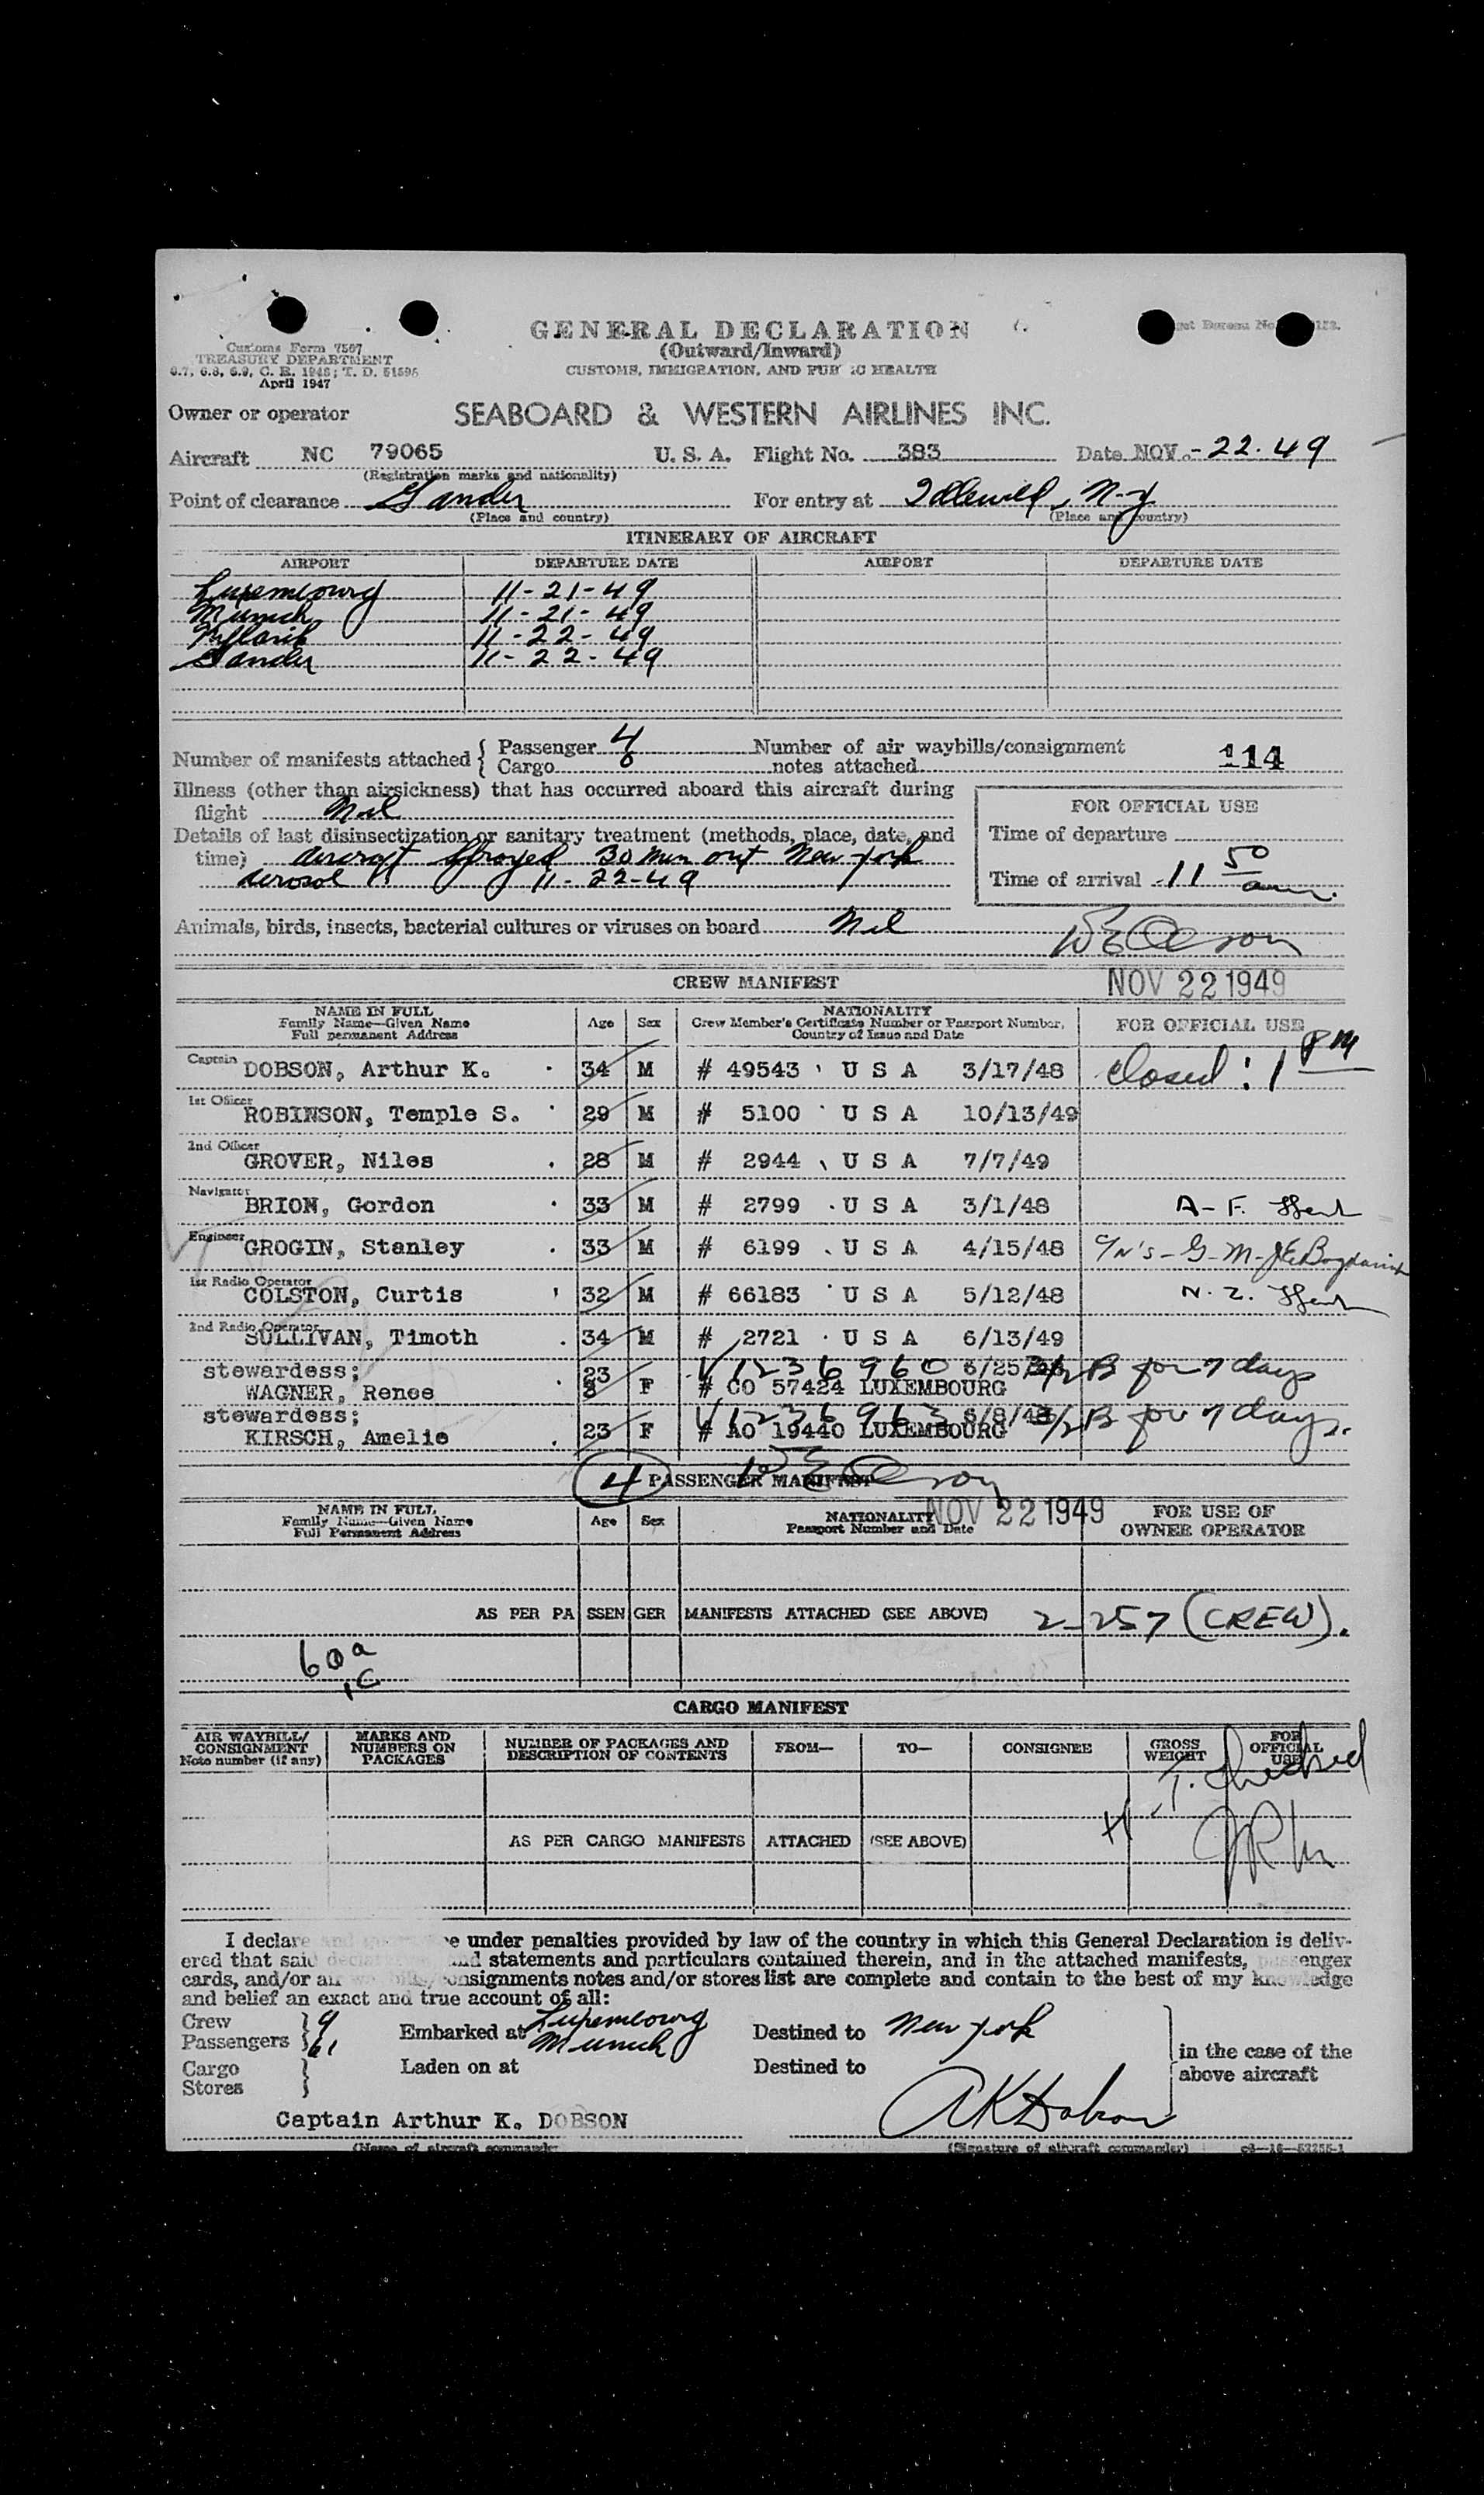 GENERAL DECLARATION
(Outward/Inward)
CUSTOMS, IMMIGRATION, AND PUB IC HEALTH
Customs Form 7507
TREASURY DEPARTMENT
6.7, 6.8, 6.9, C. R. 1943; T. D. 51595
April 1947
Owner or operator SEABOARD & WESTERN AIRLINES INC.
Aircraft NC 79065 U. S. A. Flight No. 383 Date NOV.-22-49
(Registration marks and nationality)
Point of clearance Gander For entry at Idlewild, N-y
(Place and country) (Place and country)
ITINERARY OF AIRCRAFT
AIRPORT DEPARTURE DATE AIRPORT DEPARTURE DATE
Luxembourg 11-21-49
Munich 11-21-49
11-22-49
Gander 11-22-49
Number of manifests attached { Passenger 4 Number of air waybills/consignment 114
Cargo notes attached
Illness (other than airsickness) that has occurred aboard this aircraft during
flight Nil
FOR OFFICIAL USE
Details of last disinsectization or sanitary treatment (methods, place, date, and
Time of departure
time) aircraft sprayed 30 min out New York
aerosol 11-22-49
Time of arrival 11 50 am.
Animals, birds, insects, bacterial cultures or viruses on board Nil
CREW MANIFEST NOV 22 1949
NAME IN FULL
Family Name—Given Name
Full permanent Address
Age Sex
NATIONALITY
Crew Member's Certificate Number or Passport Number,
Country of Issue and Date
FOR OFFICIAL USE
Captain DOBSON, Arthur K. 34 M # 49543 U S A 3/17/48 closed: 1 PM
1st Officer ROBINSON, Temple S. 29 M # 5100 U S A 10/13/49
2nd Officer GROVER, Niles 28 M # 2944 U S A 7/7/49
Navigator BRION, Gordon 33 M # 2799 U S A 3/1/48
Engineer GROGIN, Stanley 33 M # 6199 U S A 4/15/48
1st Radio Operator COLSTON, Curtis 32 M # 66183 U S A 5/12/48
2nd Radio Operator SULLIVAN, Timoth 34 M # 2721 U S A 6/13/49
stewardess; 23 V1236960 3/2 B for 7 days
WAGNER, Renee F # CO 57424 LUXEMBOURG
stewardess; V1236963 3/2 B for 7 days.
KIRSCH, Amelie 23 F # AO 19440 LUXEMBOURG
4 PASSENGER MANIFEST
NOV 22 1949
NAME IN FULL
Family Name—Given Name
Full Permanent Address
Age Sex
NATIONALITY
Passport Number and Date
FOR USE OF
OWNER OPERATOR
AS PER PASSENGER MANIFESTS ATTACHED (SEE ABOVE) 2-257 (CREW).
60a
1c
CARGO MANIFEST
AIR WAYBILL/
CONSIGNMENT
Note number (if any)
MARKS AND
NUMBERS ON
PACKAGES
NUMBER OF PACKAGES AND
DESCRIPTION OF CONTENTS
FROM— TO— CONSIGNEE
GROSS
WEIGHT
FOR
OFFICIAL
USE
AS PER CARGO MANIFESTS ATTACHED (SEE ABOVE)
I declare and e under penalties provided by law of the country in which this General Declaration is deliv-
ered that said statements and particulars contained therein, and in the attached manifests, passenger
cards, and/or consignments notes and/or stores list are complete and contain to the best of my knowledge
and belief an exact and true account of all:
Crew } 9
Passengers } 61
Embarked at Luxembourg
Munich
Destined to New York
in the case of the
above aircraft
Cargo }
Stores }
Laden on at Destined to
Captain Arthur K. DOBSON AKDobson
(Name of aircraft commander) (Signature of aircraft commander)